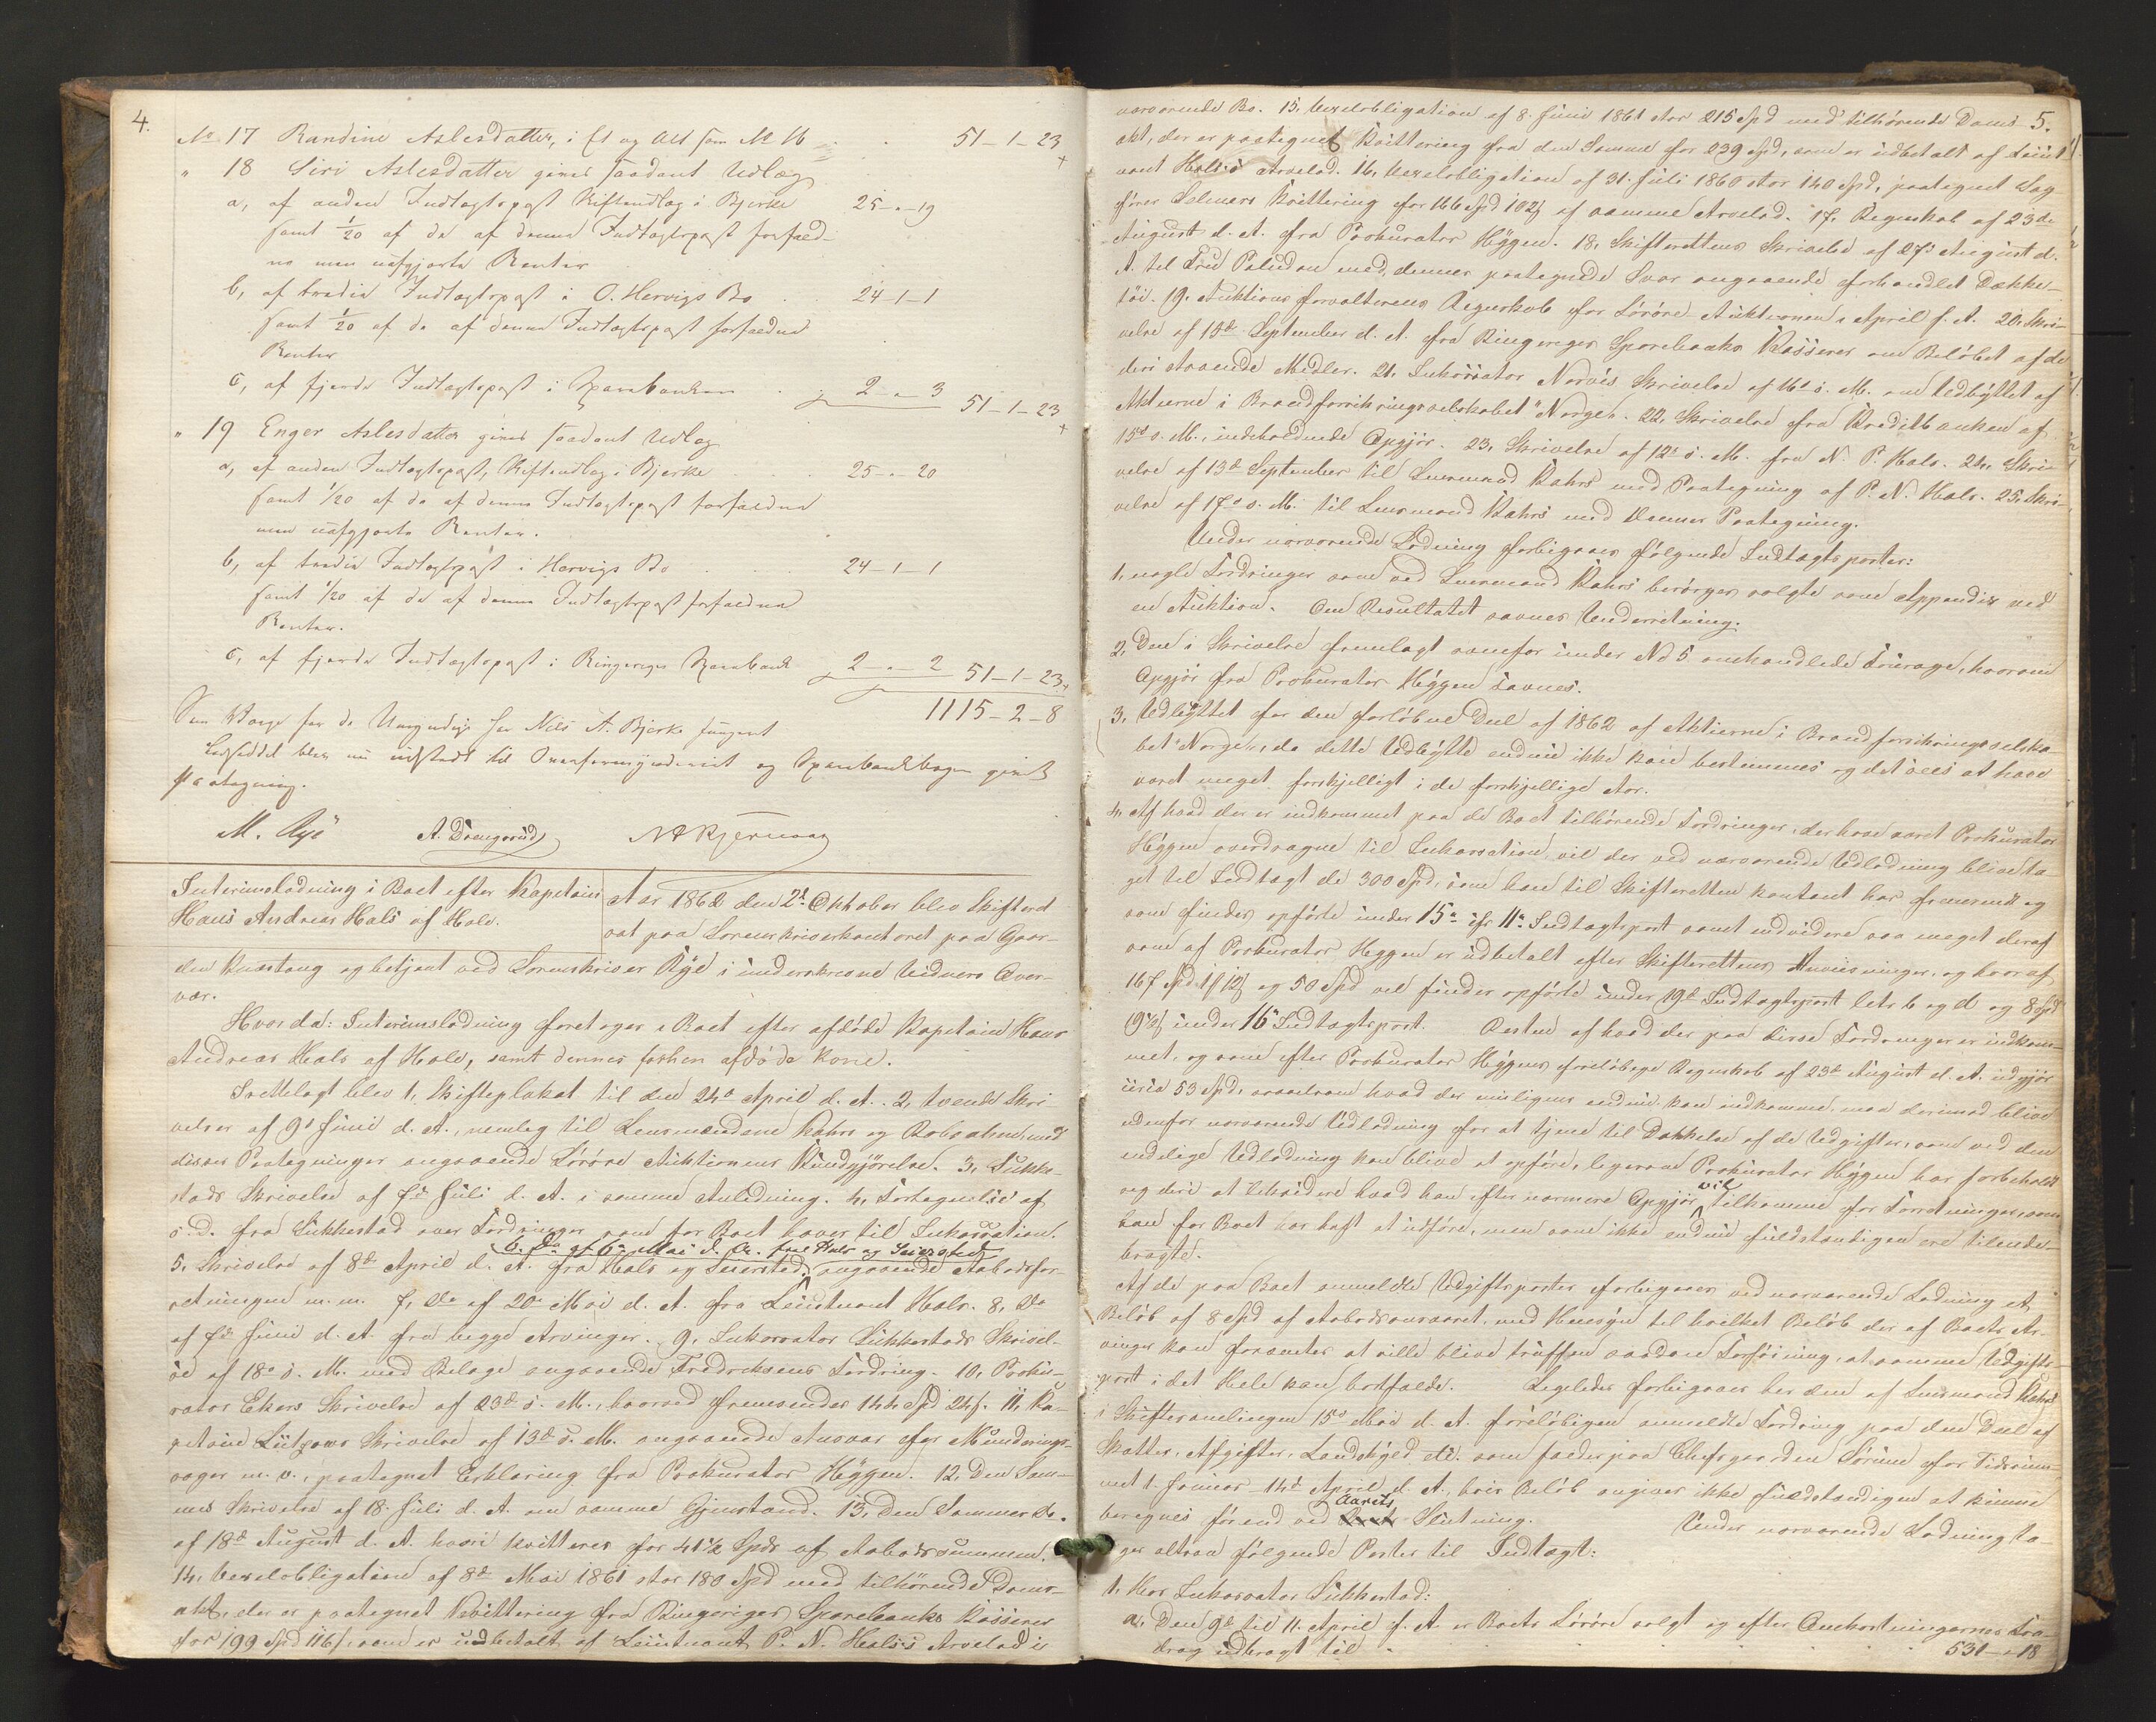 4.
No 17 Randine Aslesdatter, i Et og Alt som No 16 51-1-23
" 18 Siri Aslesdatter gives saadant Udlæg
a, af anden Indtægtspost Skifteudlæg i Bjerke 25-"-19
samt 1/20 af de af denne Indtægtspost forfald-
ne men uafgjorte Renter
b, af tredie Indtægtspost i O. Hervigs Bo 24-1-1
samt 1/20 af de af denne Indtægtspost forfaldne
Renter
c, af fjerde Indtægtspost i Sparebanken 2-"-3 51-1-23
" 19 Enger Aslesdatter gives saadant Udlæg
a, af anden Indtægtspost, Skifteudlæg i Bjerke 25-"-20
samt 1/20 af de af denne Indtægtspost forfaldne
men uafgjorte Renter.
b, af tredie Indtægtspost i Hervigs Bo 24-1-1
samt 1/20 af de af denne Indtægtspost forfaldne
Renter.
c, af fjerde Indtægtspost i Ringeriges Sparebank 2-"-2 51-1-23
1115-2-8
Som Værge for de Umyndige har Nils A. Bjerke fungeret
Lodseddel blev nu udstedt til Overformynderiet og Sparebankbogen givet
Paategning.
M. Rye A. Drengsrud
Interimslodning i Boet efter Kapitain
Hans Andreas Hals af Hole.
Aar 1862 den 2d Oktober blev Skifteret
sat paa Sorenskriverkontoret paa Gaar-
den Knestang og betjent ved Sorenskriver Rye i underskrevne Vidners Over-
vær.
Hvorda: Interimslodning foretoges i Boet efter afdøde Kapitain Hans
Andreas Hals af Hole, samt dennes forhen afdøde Kone.
Irettelagt blev 1, Skifteplakat til den 24de April d. A. 2, tvende Skri
velser af 9de Juni d. A., nemlig til Lensmændene Kahrs og Robsahm, med
disses Paategninger angaaende Løsøre Auktionens Kundgjørelse. 3, Sukke-
stads Skrivelse af 7de Juli d. A. i samme Anledning. 4, Fortegnelse af
s. D. fra Sukkestad over Fordringer som for Boet haves til Inkassation.
6. Do af 6te Mai d. A. fra Hals og Seierstad
5, Skrivelse af 8de April d. A. fra Hals og Seierstad, angaaende Aabodsfor-
retningen m. m. 7, Do af 20de Mai d. A. fra Leiutnant Hals. 8, Do
af 7de Juni d. A. fra begge Arvinger. 9, Inkassator Sukkestads Skrivel-
se af 18de s. M. med Bilage angaaende Fredriksens Fordring. 10, Proku-
rator Ekers Skrivelse af 23de s. M., hvorved fremsendes 144 Spd 24 s. 11, Ka-
pitain Lützows Skrivelse af 13de s. M. angaaende Ansvar for Munderings-
sager m. v., paategnet Erklæring fra Prokurator Heggen. 12, Den Sam-
mes Skrivelse af 18. Juli d. A. om samme Gjenstand. 13, Den Sammes Do.
af 18de August d. A. hvori kvitteres for 41 1/2 Spd af Aabodssummen.
14, Vexelobligation af 8de Mai 1861 stor 180 Spd med tilhørende Doms-
akt, der er paategnet Kvittering fra Ringeriges Sparebanks Kasserer
for 199 Spd 116 s, som er udbetalt af Leiutnant P. N. Hals's Arvelod i
5.
nærværende Bo. 15, Vexelobligation af 8. Juni 1861 stor 215 Spd med tilhørende Doms-
akt, der er paategnet Kvittering fra den Samme for 239 Spd, som er udbetalt af Leiut-
nant Hals's Arvelod. 16, Vexelobligation af 31. Juli 1860 stor 140 Spd, paategnet Sag-
fører Selmers Kvittering for 166 Spd 102 s af samme Arvelod. 17, Regnskab af 23de
August d. A. fra Prokurator Heggen. 18, Skifterettens Skrivelse af 27de August d.
A. til Fru Paludan med dennes paategnede Svar angaaende forhandlet Dække-
tøi. 19, Auktionsforvalterens Regnskab for Løsøre-Auktionen i April d. A. 20, Skri-
velse af 15de September d. A. fra Ringeriges Sparebanks Kasserer om Beløbet af de
deri staaende Midler. 21, Inkassator Norvis Skrivelse af 16de s. M. om Udbyttet af
Aktierne i Brandforsikringsselskabet "Norge". 22, Skrivelse fra Kreditbanken af
15de s. M., indeholdende Opgjør. 23, Skrivelse af 12te s. M. fra N. P. Hals. 24, Skri-
velse af 13de September til Lensmand Kahrs med Paategning af P. N. Hals. 25, Skri-
velse af 17de s. M. til Lensmand Kahrs med dennes Paategning.
Under nærværende Lodning forbigaaes følgende Indtægtsposter:
1, nogle Fordringer som ved Lensmand Kahrs besørges solgte som Appendix ved
en Auktion. Om Resultatet savnes Underretning.
2, Den i Skrivelse fremlagt ovenfor under No 5 omhandlede Fourage, hvorom
Opgjør fra Prokurator Heggen savnes.
3, Udbyttet for den forløbne Deel af 1862 af Aktierne i Brandforsikringsselska-
bet "Norge", da dette Udbytte endnu ikke kan bestemmes og det sees at have
været meget forskjelligt i de forskjellige Aar.
4, Af hvad der er indkommet paa de Boet tilhørende Fordringer, der have været Prokurator
Heggen overdragne til Inkassation, vil der ved nærværende Udlodning blive ta-
get til Indtægt de 300 Spd, som han til Skifteretten kontant har fremsendt og
som findes opførte under 15de cfr 11te Indtægtspost samt endvidere saa meget deraf
som af Prokurator Heggen er udbetalt efter Skifterettens Anvisninger, og hvoraf
167 Spd 1 # 12 s og 50 Spd vil findes opførte under 19de Indtægtspost lit. b og d og 8 Spd
under 16de Indtægtspost. Resten af hvad der paa disse Fordringer er indkom-
met, og som efter Prokurator Heggens foreløbige Regnskab af 23de August d. A. udgjør
circa 53 Spd, saavelsom hvad der muligens endnu kan indkomme, maa derimod blive
udenfor nærværende Udlodning for at tjene til Dækkelse af de Udgifter, som ved den
endelige Udlodning kan blive at opføre, ligesom Prokurator Heggen har forbeholdt
sig deri at likvidere hvad han efter nærmere Opgjør vil tilkomme for Forretninger, som
han for Boet har havt at udføre, men som ikke endnu fuldstændigen ere tilende-
bragte.
Af de paa Boet anmeldte Udgiftsposter forbigaaes ved nærværende Lodning et
Beløb af 8 Spd af Aabodsansvaret, med Hensyn til hvilket Beløb der af Boets Ar-
vinger kan forventes at ville blive truffen saadan Forføining, at samme Udgifts-
post i det Hele kan bortfalde. Ligeledes forbigaaes her den af Lensmand Kahrs
i Skiftesamlingen 15de Mai d. A. foreløbigen anmeldte Fordring paa den Deel af
Skatter, Afgifter, Landskyld etc. som falder paa Chefsgaarden Sørum for Tidsrum-
met 1. Januar - 14de April d. A., hvis Beløb angives ikke fuldstændigen at kunne
beregnes førend ved Aarets Slutning. Under nærværende Lodning ta-
ges altsaa følgende Poster til Indtægt:
1, Hos Inkassator Sukkestad:
a, Den 9de til 11. April d. A. er Boets Løsøre solgt og efter Omkostningernes Fra-
drag udbragt til 531-"-18